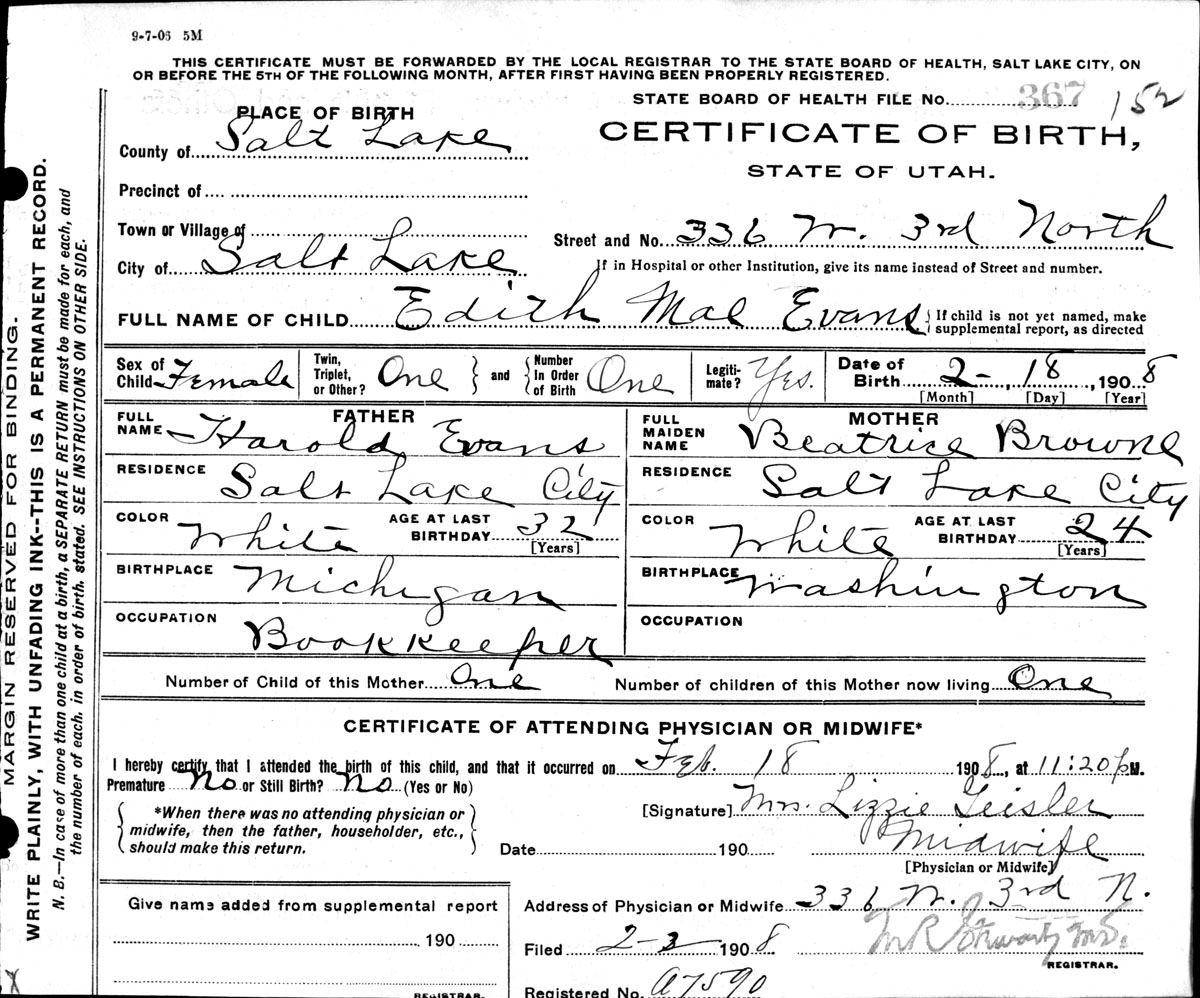 9-7-06 5M
THIS CERTIFICATE MUST BE FORWARDED BY THE LOCAL REGISTRAR TO THE STATE BOARD OF HEALTH, SALT LAKE CITY, ON
OR BEFORE THE 5TH OF THE FOLLOWING MONTH, AFTER FIRST HAVING BEEN PROPERLY REGISTERED.
STATE BOARD OF HEALTH FILE No. 367 152
PLACE OF BIRTH
CERTIFICATE OF BIRTH,
STATE OF UTAH.
County of Salt Lake
Precinct of
Town or Village of
City of Salt Lake
Street and No. 336 W. 3rd North
If in Hospital or other Institution, give its name instead of Street and number.
FULL NAME OF CHILD Edith Mae Evans
If child is not yet named, make
supplemental report, as directed
Sex of Child Female
Twin, Triplet, or Other? One and Number In Order of Birth One
Legiti-mate? Yes.
Date of Birth 2- 18, 1908
[Month] [Day] [Year]
FATHER
FULL NAME Harold Evans
RESIDENCE Salt Lake City
COLOR White AGE AT LAST BIRTHDAY 32
[Years]
BIRTHPLACE Michigan
OCCUPATION Bookkeeper
MOTHER
FULL MAIDEN NAME Beatrice Browne
RESIDENCE Salt Lake City
COLOR White AGE AT LAST BIRTHDAY 24
[Years]
BIRTHPLACE Washington
OCCUPATION
Number of Child of this Mother One Number of children of this Mother now living One
CERTIFICATE OF ATTENDING PHYSICIAN OR MIDWIFE*
I hereby certify that I attended the birth of this child, and that it occurred on Feb. 18 1908, at 11:20 pM.
Premature No or Still Birth? No (Yes or No)
*When there was no attending physician or
midwife, then the father, householder, etc.,
should make this return.
[Signature] Mrs. Lizzie Geisler
Date 190 Midwife
[Physician or Midwife]
Give name added from supplemental report
190
REGISTRAR.
Address of Physician or Midwife 336 W. 3rd N.
Filed 2-3 1908
REGISTRAR.
Registered No. a7590
MARGIN RESERVED FOR BINDING.
WRITE PLAINLY, WITH UNFADING INK--THIS IS A PERMANENT RECORD.
N. B.—In case of more than one child at a birth, a SEPARATE RETURN must be made for each, and
the number of each, in order of birth, stated. SEE INSTRUCTIONS ON OTHER SIDE.